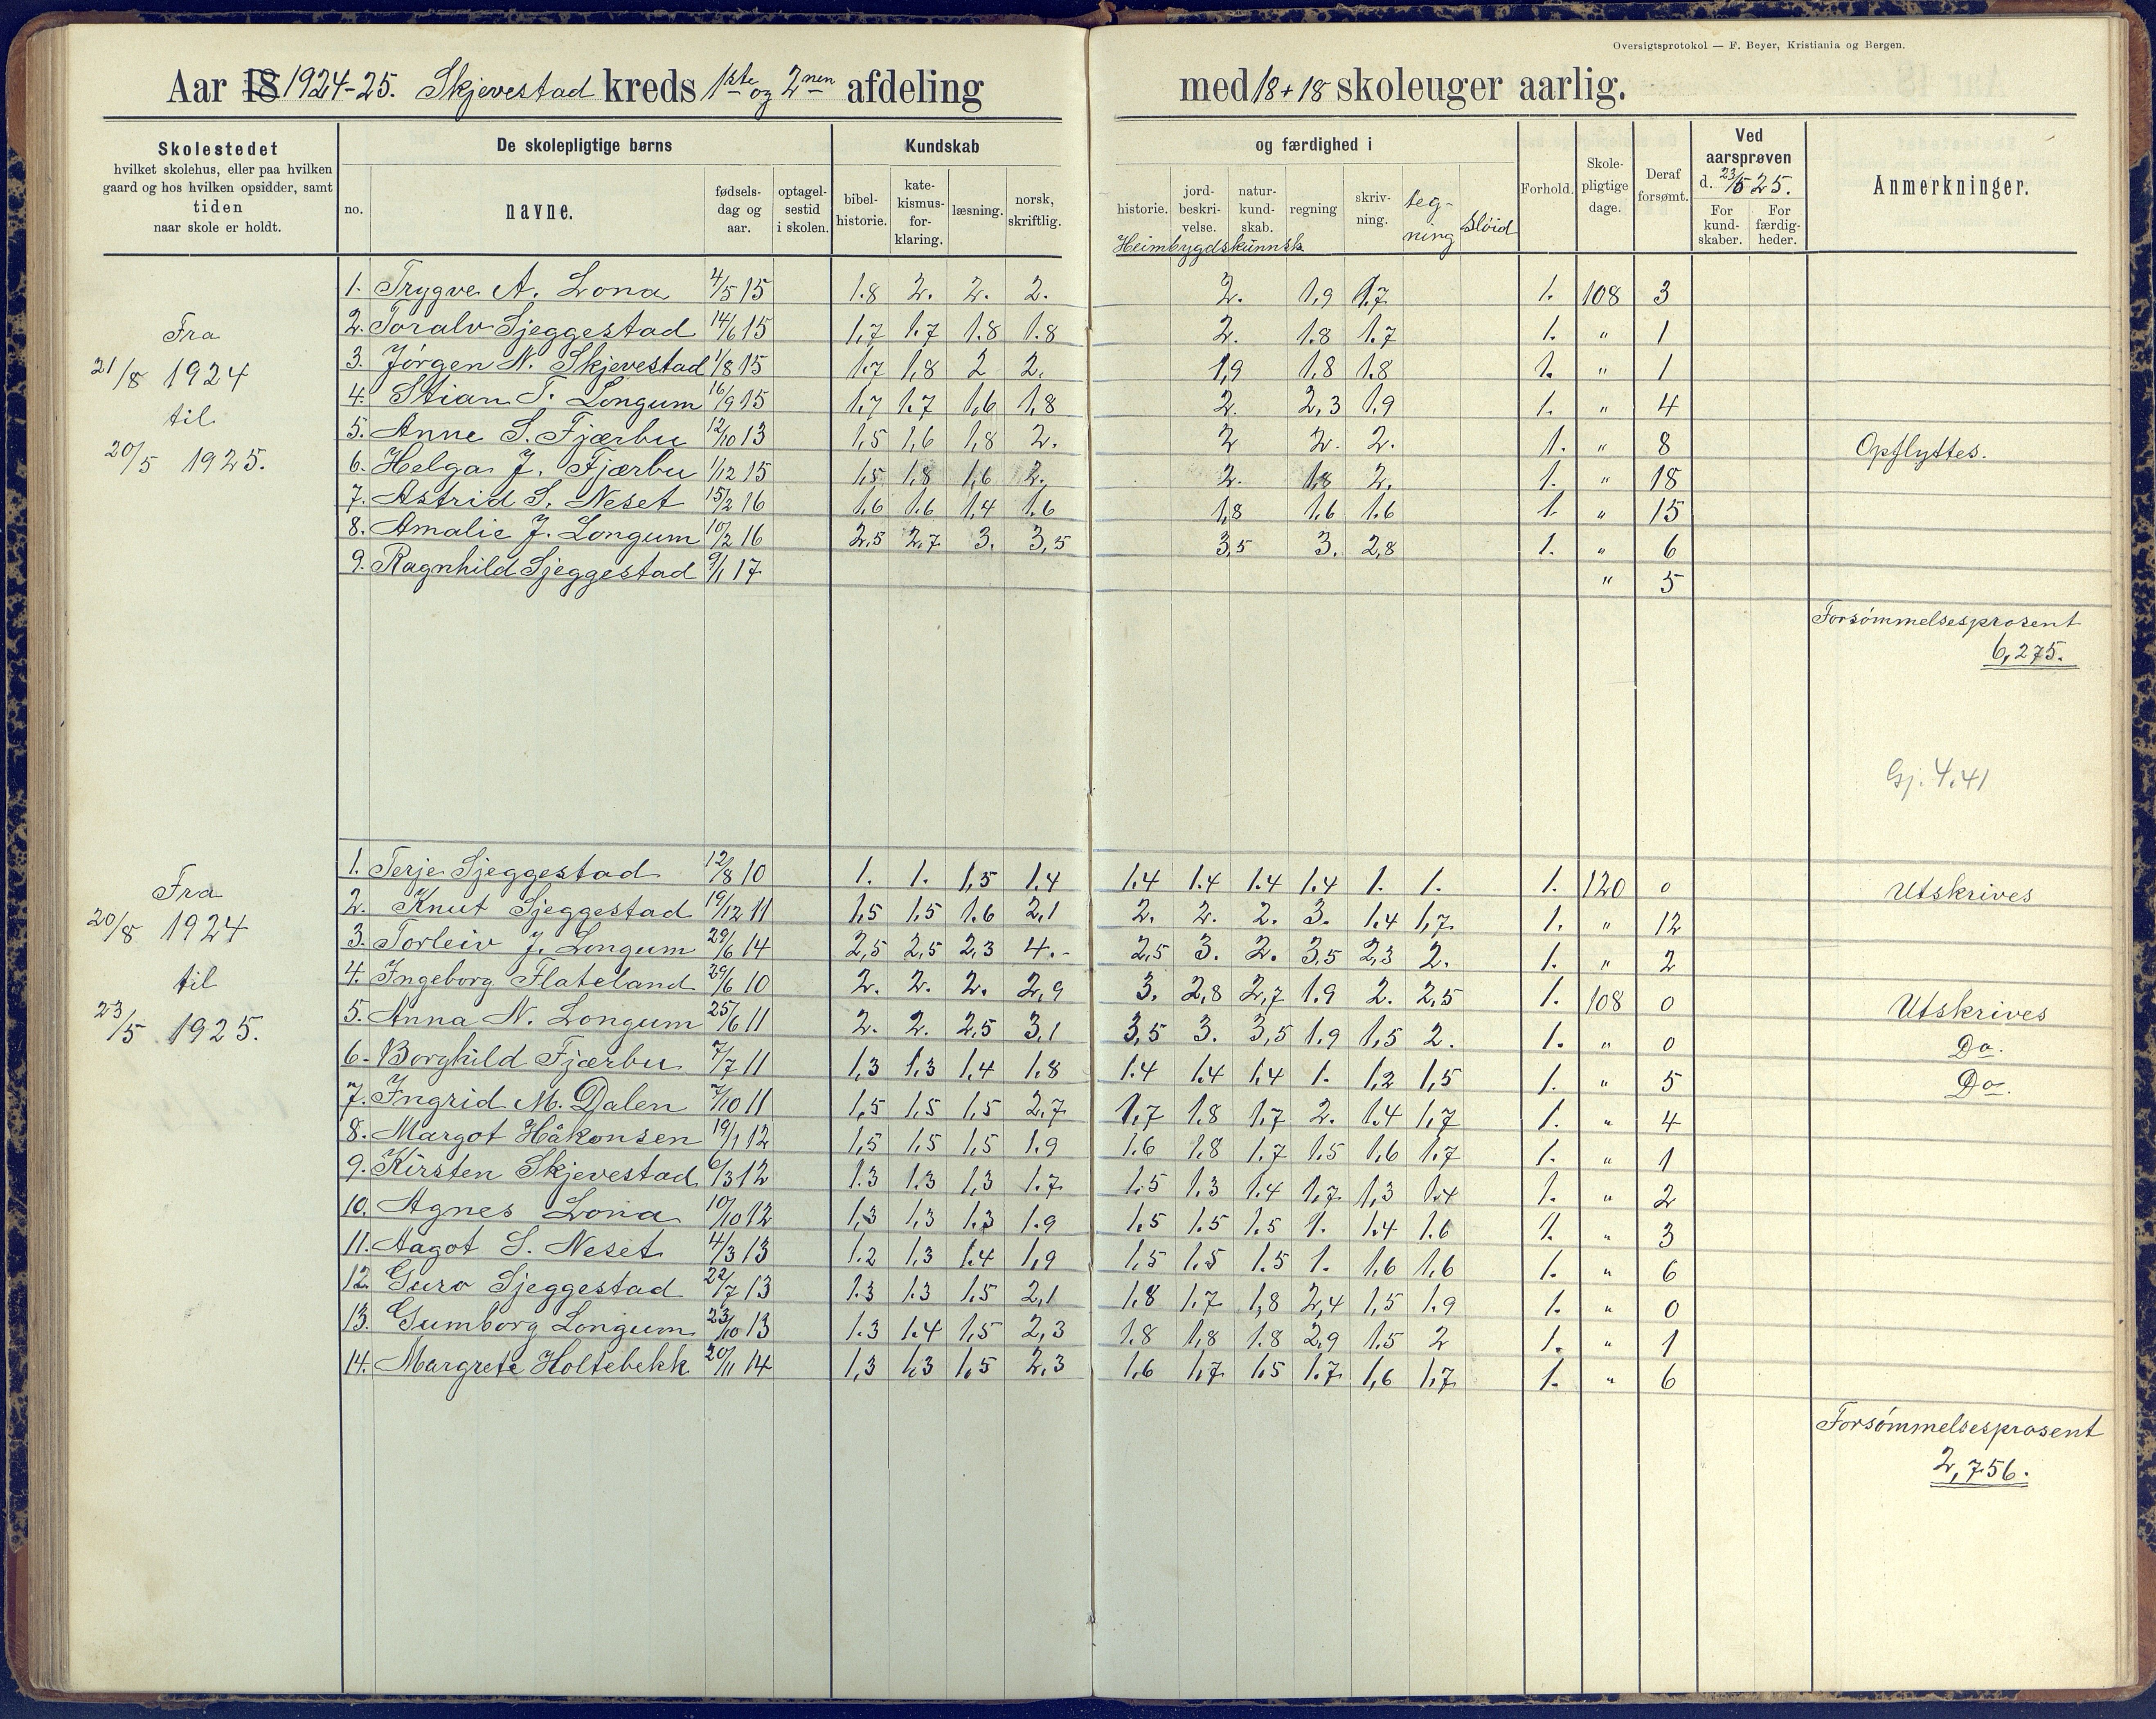 Oversigtsprotokol — F. Beyer, Kristiania og Bergen.
Aar 18 1924-25. Skjevestad kreds 1ste og 2nen afdeling med 18+18 skoleuger aarlig.
Skolestedet hvilket skolehus, eller paa hvilken gaard og hos hvilken opsidder, samt tiden naar skole er holdt.
De skolepligtige børns
no. navne. fødsels-dag og aar. optagel-sestid i skolen.
Kundskab og færdighed i
bibel-historie. kate-kismus-for-klaring. læsning. norsk, skriftlig. historie. jord-beskri-velse. natur-kund-skab. regning skriv-ning. teg-ning sløid
Heimbygdskunnsk
Forhold. Skole-pligtige dage. Deraf forsømt.
Ved aarsprøven d. 23/5 25.
For kund-skaber. For færdig-heder.
Anmerkninger.
Fra
21/8 1924
til
20/5 1925.
1. Trygve A. Lona 4/5 15 1.8 2. 2. 2. 2. 1,9 1.7 1. 108 3
2. Toralv Sjeggestad 14/6 15 1,7 1.7 1.8 1.8 2. 1.8 1.7 1. " 1
3. Jørgen N. Skjevestad 1/8 15 1.7 1,8 2 2. 1,9 1,8 1.8 1. " 1
4. Stian T. Longum 16/9 15 1.7 1.7 1,6 1,8 2. 2,3 1.9 1. " 4
5. Anne S. Fjærbu 12/10 13 1,5 1,6 1,8 2. 2 2. 2. 1. " 8 Opflyttes.
6. Helga J. Fjærbu 1/12 15 1,5 1,8 1,6 2. 2. 1,8 2. 1. " 18
7. Astrid S. Neset 15/2 16 1,6 1.6 1,4 1.6 1,8 1,6 1.6 1. " 15
8. Amalie J. Longum 10/2 16 2.5 2,7 3. 3,5 3,5 3. 2,8 1. " 6
9. Ragnhild Sjeggestad 9/1 17 " 5
Forsømmelsesprosent
6,275.
Gj. 4.41
Fra
20/8 1924
til
23/5 1925.
1. Terje Sjeggestad 12/8 10 1. 1. 1,5 1.4 1.4 1.4 1.4 1.4 1. 1. 1. 120 0 Utskrives
2. Knut Sjeggestad 19/12 11 1,5 1,5 1.6 2,1 2. 2. 2. 3. 1.4 1,7 1. " 12
3. Torleiv J. Longum 29/6 14 2,5 2,5 2,3 4.- 2,5 3. 2. 3,5 2,3 2. 1. " 2
4. Ingeborg Flateland 29/6 10 2. 2. 2. 2,9 3. 2,8 2,7 1.9 2. 2,5 1. 108 0 Utskrives
5. Anna N. Longum 25/6 11 2. 2. 2,5 3,1 3,5 3. 3,5 1.9 1,5 2. 1. " 0 Do.
6. Borghild Fjærbu 7/7 11 1,3 1.3 1,4 1.8 1.4 1.4 1,4 1. 1,2 1,5 1. " 5 Do.
7. Ingrid M. Dalen 7/10 11 1,5 1,5 1,5 2,7 1,7 1.8 1,7 2. 1.4 1,7 1. " 4
8. Margot Håkonsen 19/1 12 1,5 1,5 1,5 1.9 1.6 1,8 1.7 1.5 1,6 1.7 1. " 1
9. Kirsten Skjevestad 6/3 12 1.3 1.3 1,3 1.7 1.5 1.3 1.4 1,7 1,3 1.4 1. " 2
10. Agnes Lona 10/10 12 1,3 1,3 1.3 1.9 1.5 1.5 1.5 1. 1.4 1.6 1. " 3
11. Aagot S. Neset 4/3 13 1.2 1,3 1.4 1,9 1,5 1.5 1.5 1. 1,6 1,6 1. " 6
12. Guro Sjeggestad 22/7 13 1.3 1.3 1.5 2,1 1.8 1.7 1,8 2,4 1,5 1.9 1. " 0
13. Gumborg Longum 23/10 13 1.3 1.4 1,5 2,3 1.8 1,8 1.8 2,9 1.5 2 1. " 1
14. Margrete Holtebekk 20/11 14 1,3 1,3 1.5 2.3 1,6 1,7 1.5 1.7 1,6 1,7 1. " 6
Forsømmelsesprosent
2,756.